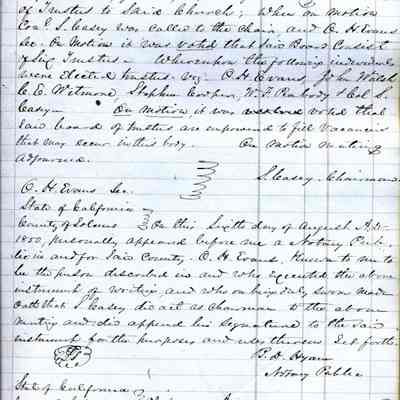 of Trustees to Said Church; When on motion
Col S. Casey was called to the Chair, and O. H. Evans
Sec. On Motion it was voted that Said Board Consist
of Six Trustees - Whereupon the following individuals
were elected trustees. viz. O. H. Evans, John Walsh
C. E. Wetmore, Stephen Cooper, W. F. Peabody & Col. S.
Casey - On motion, it was resolved voted that
Said board of trustees are empowered to fill vacancies
that may occur in this body. On Motion meeting
adjourned.
S. Casey - Chairman
O. H. Evans Sec.
State of California
County of Solano On this Sixth day of August A.D.
1850, personally appeared before me a Notary Pub-
lic in and for Said County - O. H. Evans. Known to me to
be the person described in and who executed the above
instrument of writing, and who on being duly sworn made
oath that S. Casey did act as Chairman to the above
meeting and did append his signature to the said
instrument for the purposes and uses therein Set forth.
B. D. Hyam
Notary Public
State of California